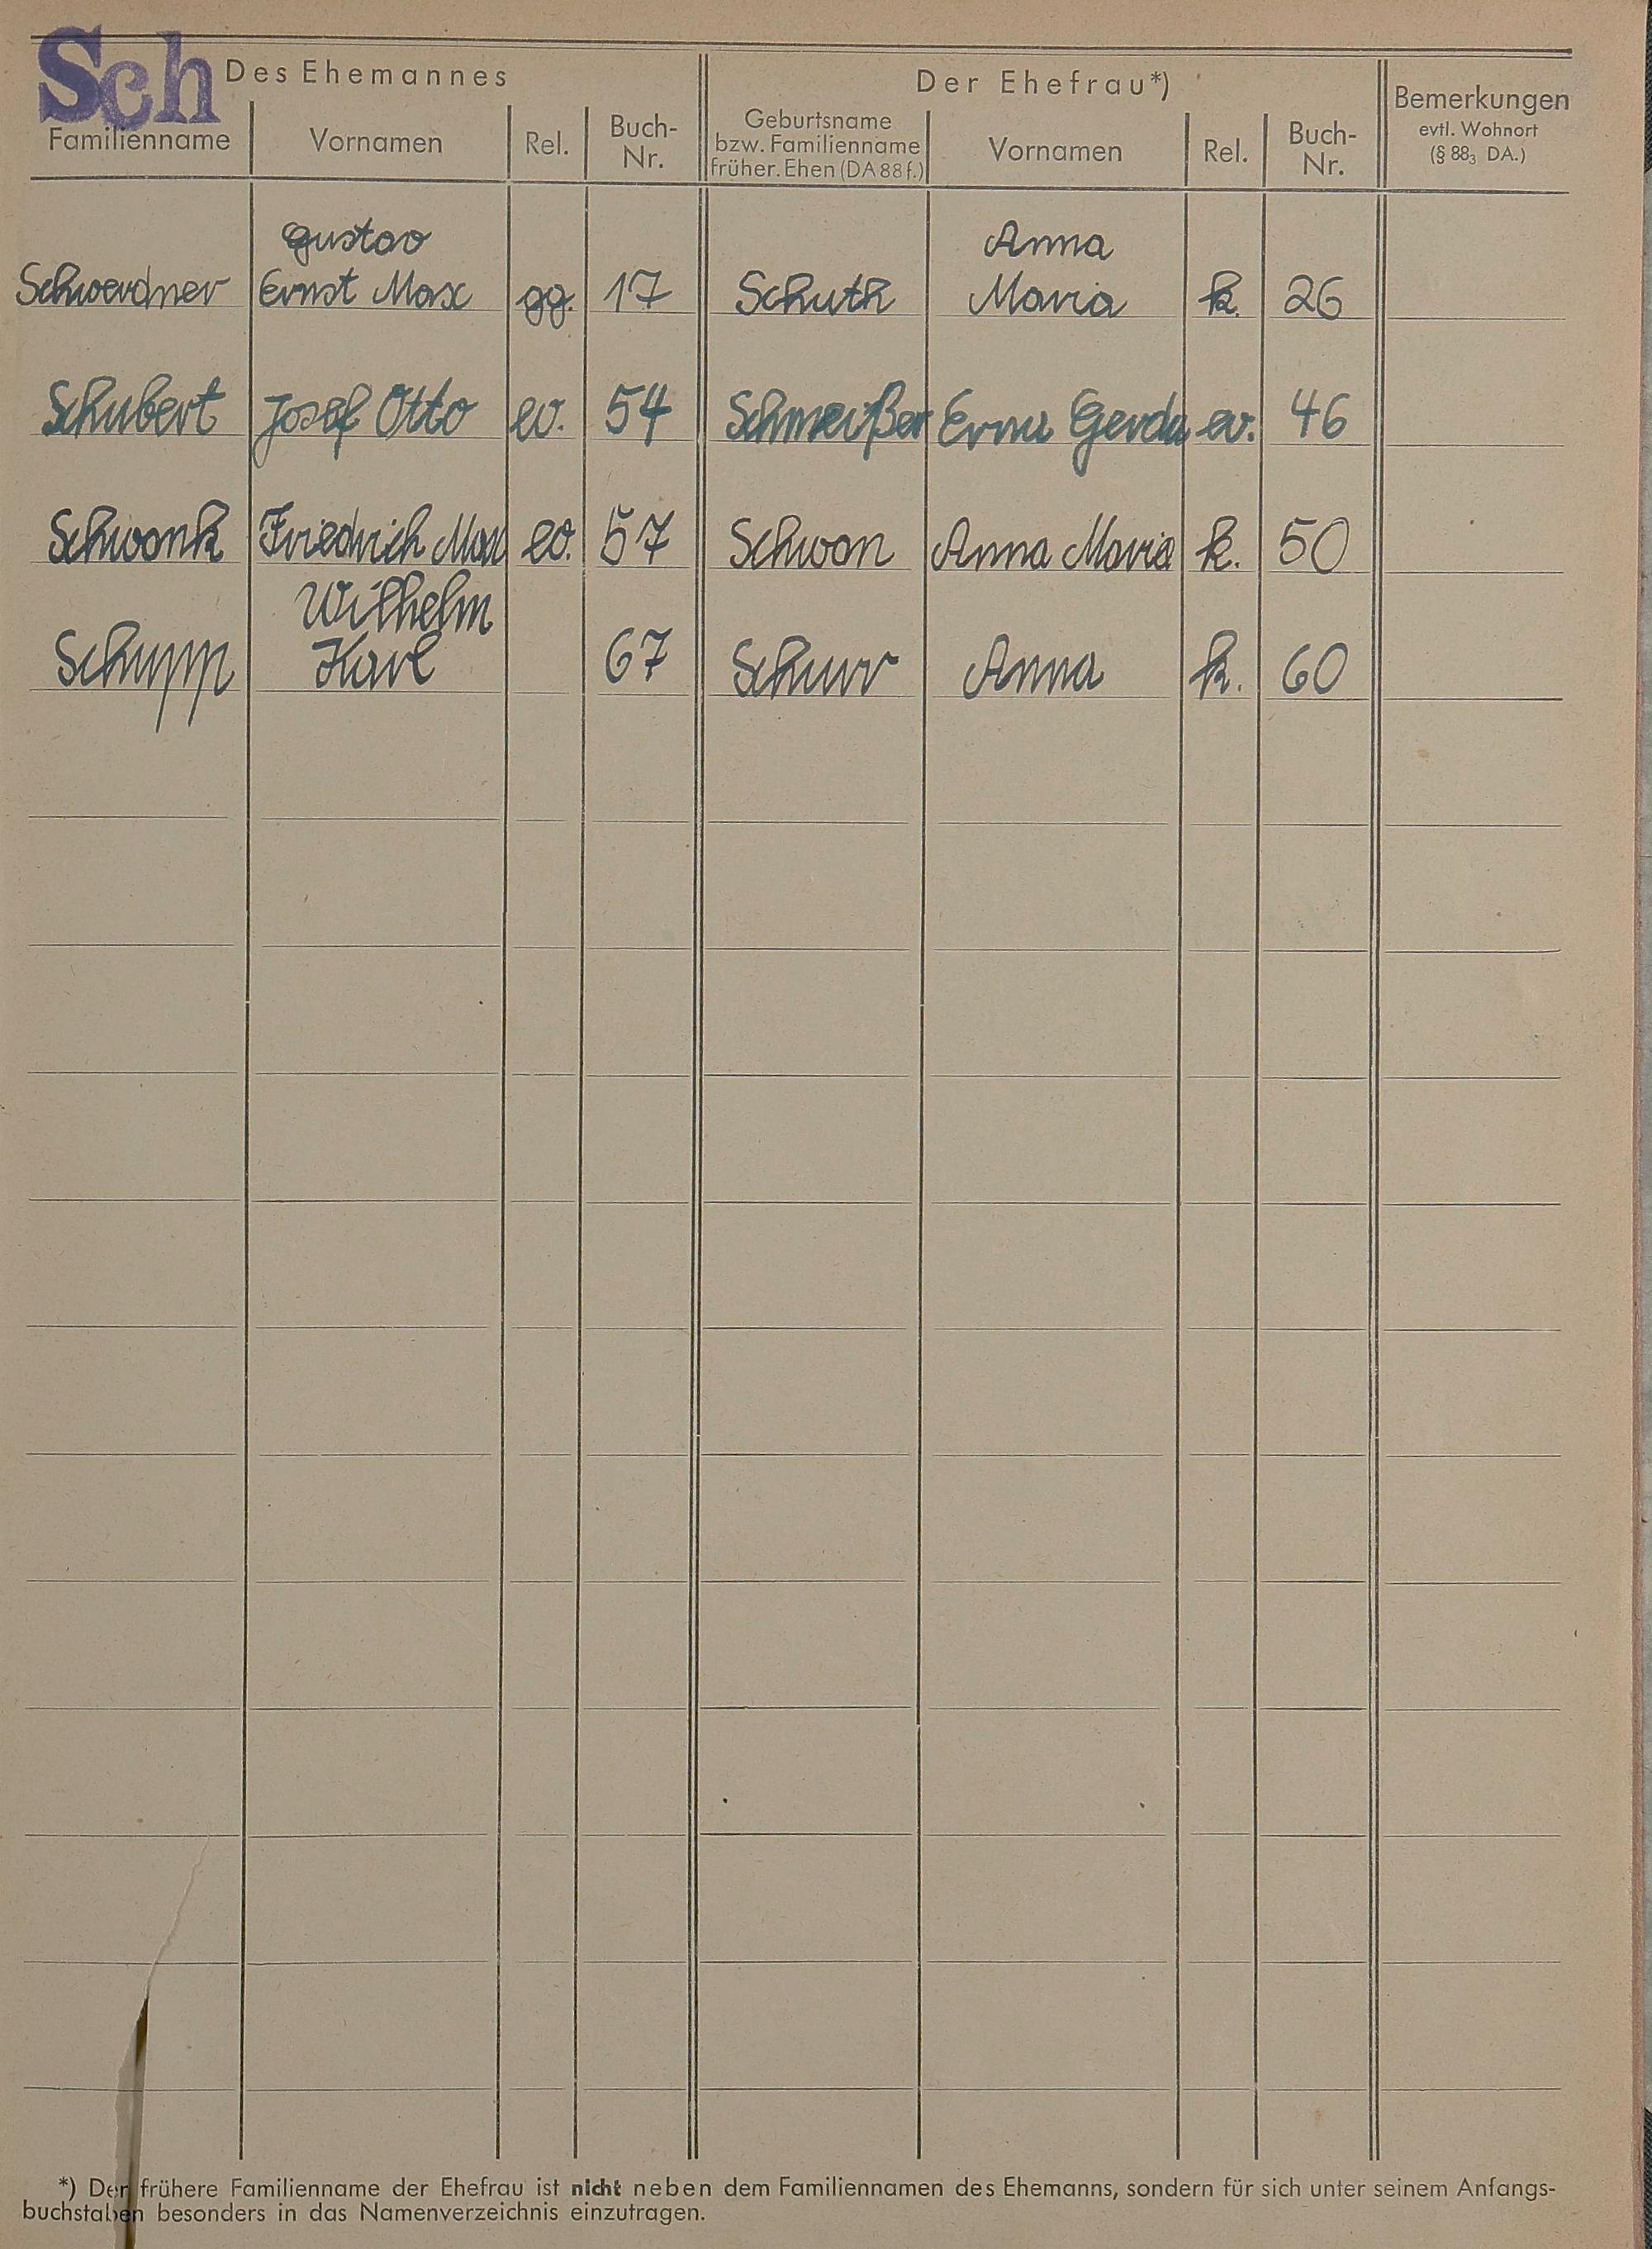 Sch
Des Ehemannes
Der Ehefrau*)
Bemerkungen
evtl. Wohnort
(§ 88₃ DA.)
Familienname
Vornamen
Rel.
Buch-
Nr.
Geburtsname
bzw. Familienname
früher. Ehen (DA 88 f.)
Vornamen
Rel.
Buch-
Nr.
Gustav
Anna
Schwerdner Ernst Max gg. 17 Schuth Maria k. 26
Schubert Josef Otto ev. 54 Schmeißer Erna Gerda ev. 46
Schwank Friedrich Max ev. 57 Schwan Anna Maria k. 50
Wilhelm
Schupp Karl 67 Schurr Anna k. 60
*) Der frühere Familienname der Ehefrau ist nicht neben dem Familiennamen des Ehemanns, sondern für sich unter seinem Anfangs-
buchstaben besonders in das Namenverzeichnis einzutragen.